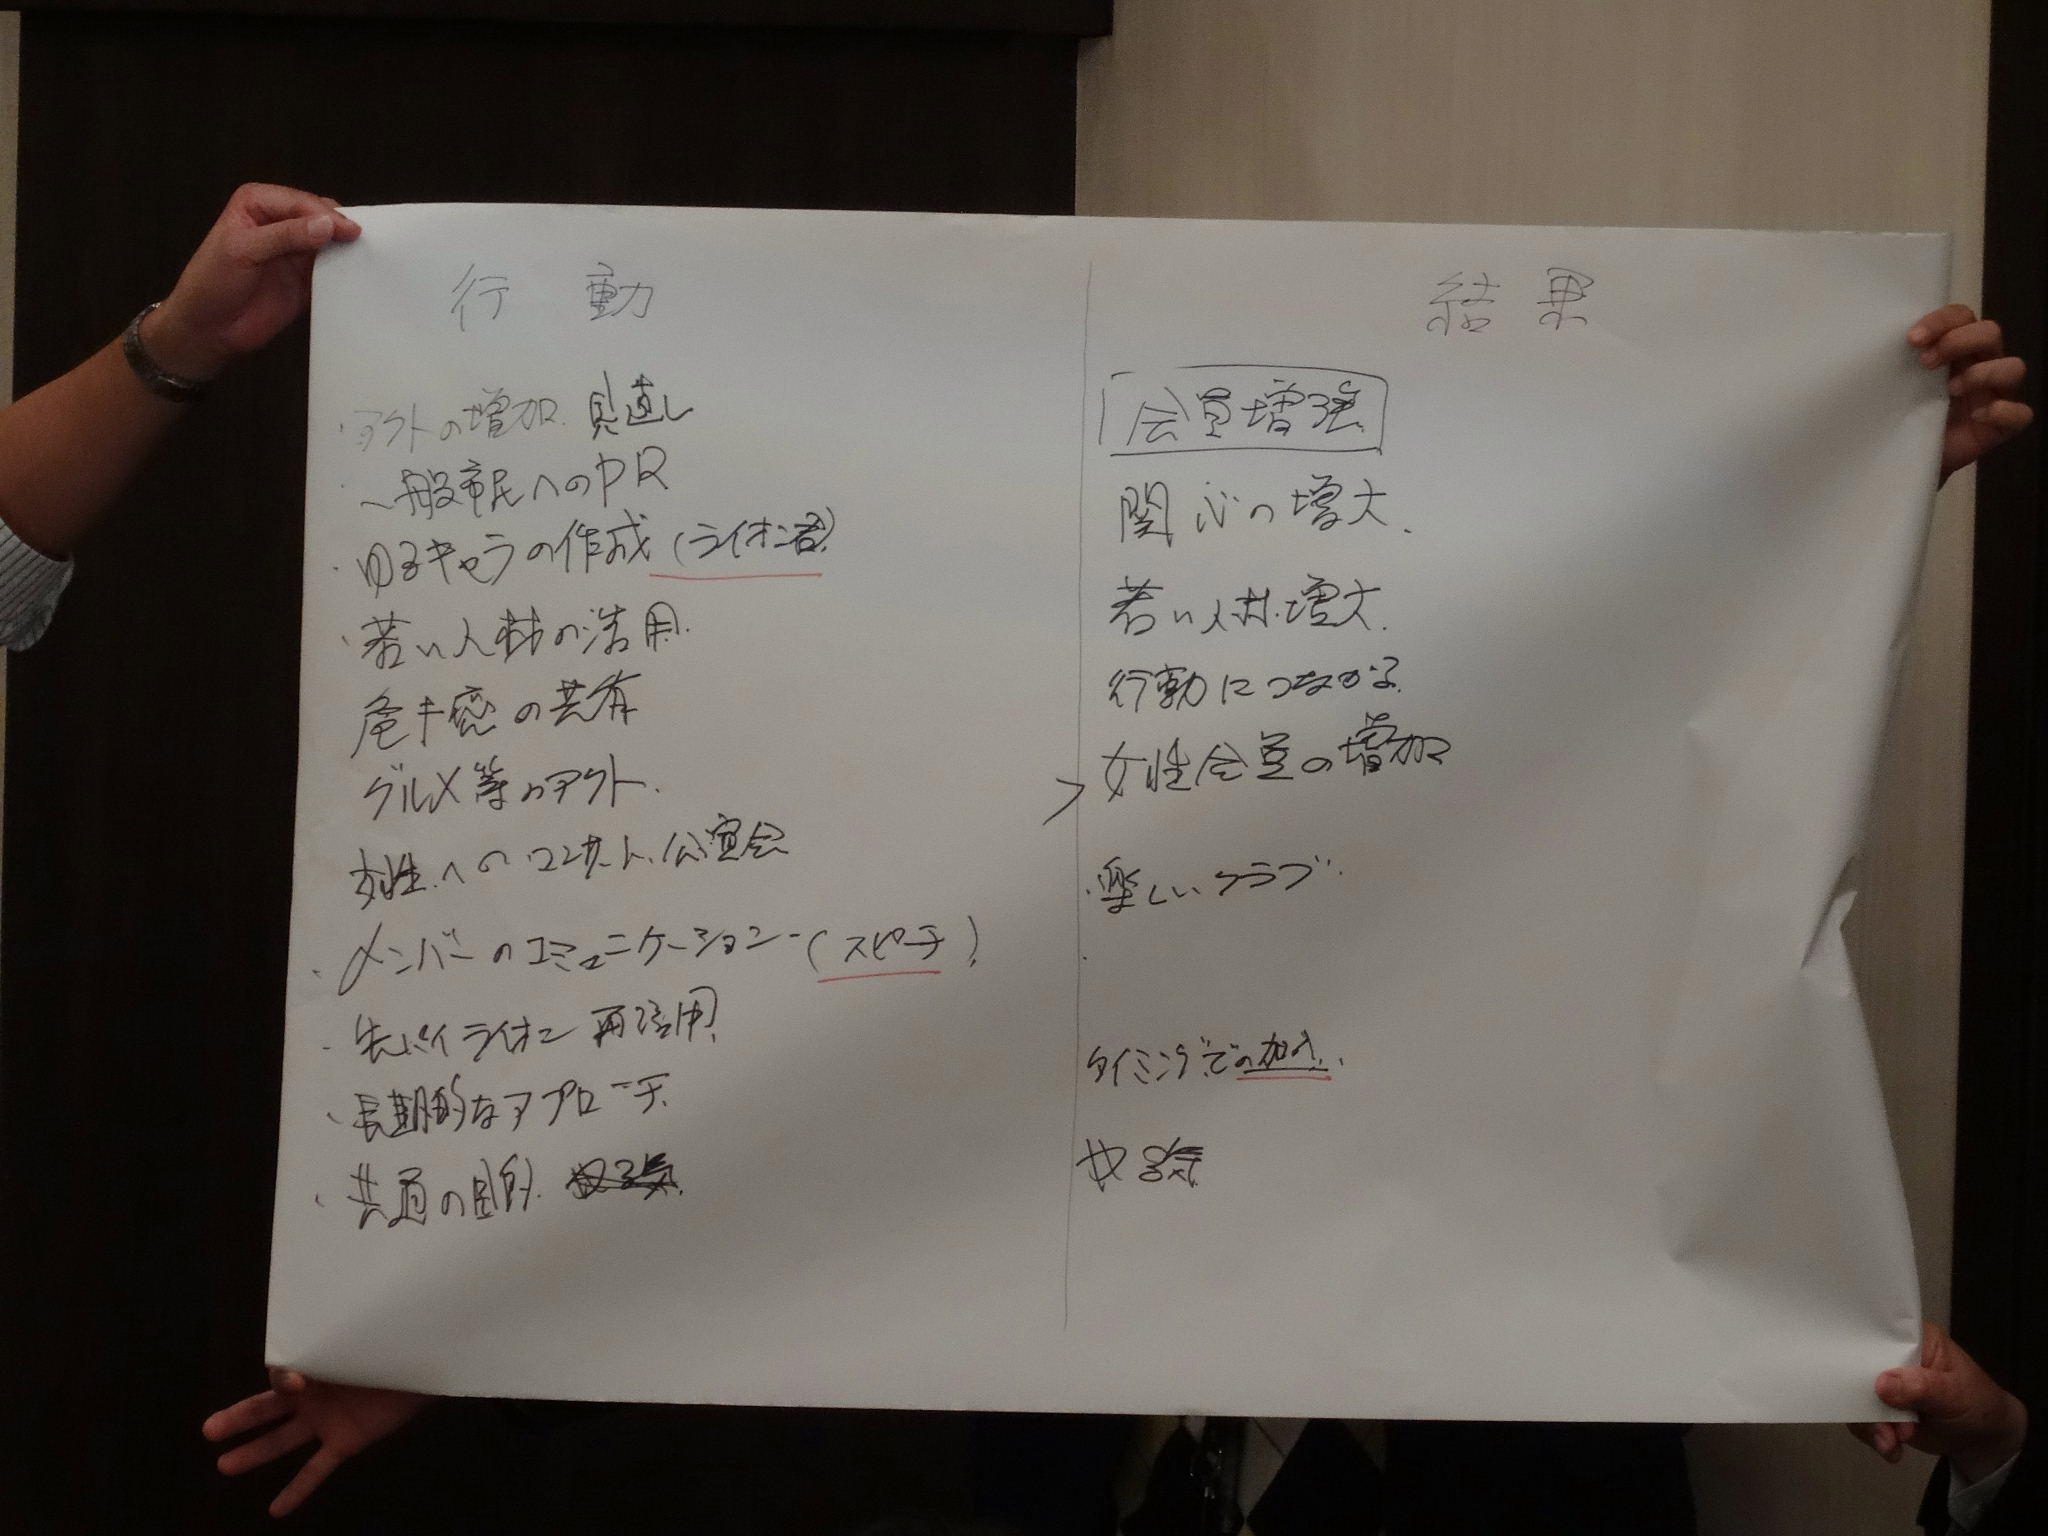 行動
・アクトの増加.見直し
・一般市民へのPR
・ゆるキャラの作成(ライオン君)
・若い人材の活用.
危キ感の共有
グルメ等のアクト.
女性へのコンサート.公演会
・メンバーのコミュニケーション-(スピーチ)
・先パイライオン再活用.
・長期的なアプローチ.
・共通の目的.
結果
会員増強
関心の増大.
若い人材.増大.
行動につながる.
> 女性会員の増加
・楽しいクラブ.
・
タイミングでの加入.